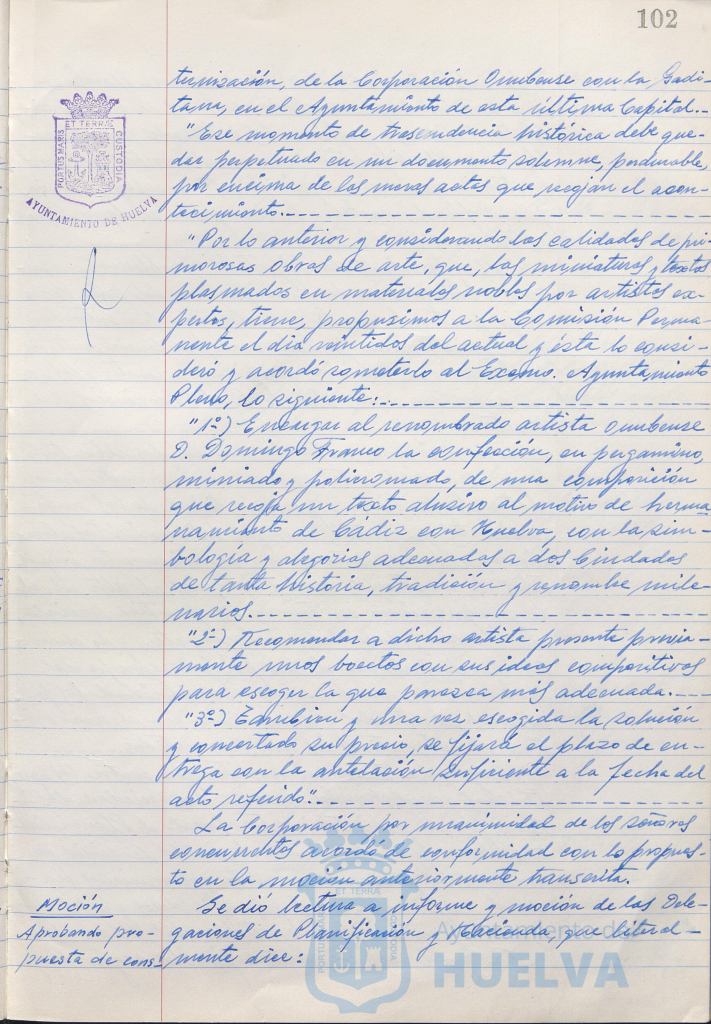 102
ternización, de la Corporación Onubense con la Gadi-
tana, en el Ayuntamiento de esta última Capital.-
"Ese momento de trascendencia histórica debe que-
dar perpetuado en un documento solemne, perdurable,
por encima de las meras actas que recojan el acon-
tecimiento.-
"Por lo anterior y considerando las calidades de pri-
morosas obras de arte, que, las miniaturas y textos
plasmados en materiales nobles por artistas ex-
pertos, tiene, propusimos a la Comisión Perma-
nente el día veintidos del actual y ésta lo consi-
deró y acordó someterlo al Excmo. Ayuntamiento
Pleno, lo siguiente:.-
"1º) Encargar al renombrado artista onubense
D. Domingo Franco la confección, en pergamino,
miniado y policromado, de una composición
que recoja un texto alusivo al motivo de herma
namiento de Cádiz con Huelva, con la sim-
bología y alegorías adecuadas a dos Ciudades
de tanta historia, tradición y renombre mile-
narios.-
"2º) Recomendar a dicho artista presente previa-
mente unos bocetos con sus ideas compositivas
para escoger la que parezca más adecuada.-
"3º) También y una vez escogida la solución
y concertado su precio, se fijará el plazo de en-
trega con la antelación suficiente a la fecha del
acto referido".-
La Corporación por unanimidad de los señores
concurrentes acordó de conformidad con lo propues-
to en la moción anteriormente transcrita.
Se dió lectura a informe y moción de las Dele-
gaciones de Planificación y Hacienda, que literal-
mente dice:
Moción
Aprobando pro-
puesta de cons-
PORTUS MARIS ET TERRAE CUSTODIA
AYUNTAMIENTO DE HUELVA
PORTUS MARIS ET TERRAE CUSTODIA
Ayuntamiento de
HUELVA